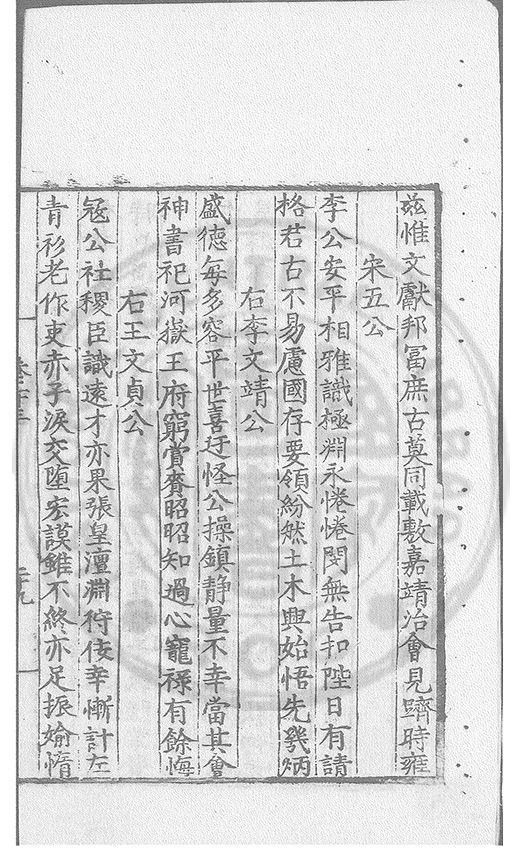 茲惟文獻邦冨庶古莫同載敷嘉靖治會見躋時雍
宋五公
李公安平相雅識極淵永惓惓閔無告扣陛日有請
格君古不易慮國存要領紛然土木興始悟先幾炳
右李文靖公
盛德每多容平世喜迂怪公操鎮静量不幸當其會
神書祀河嶽王府窮賞賚昭昭知過心寵祿有餘悔
右王文貞公
冦公社稷臣識遠才亦果張皇澶淵狩佞幸慚計左
青衫老作吏赤子淚交堕宏謨雖不終亦足振媮惰
卷之十三
二十九